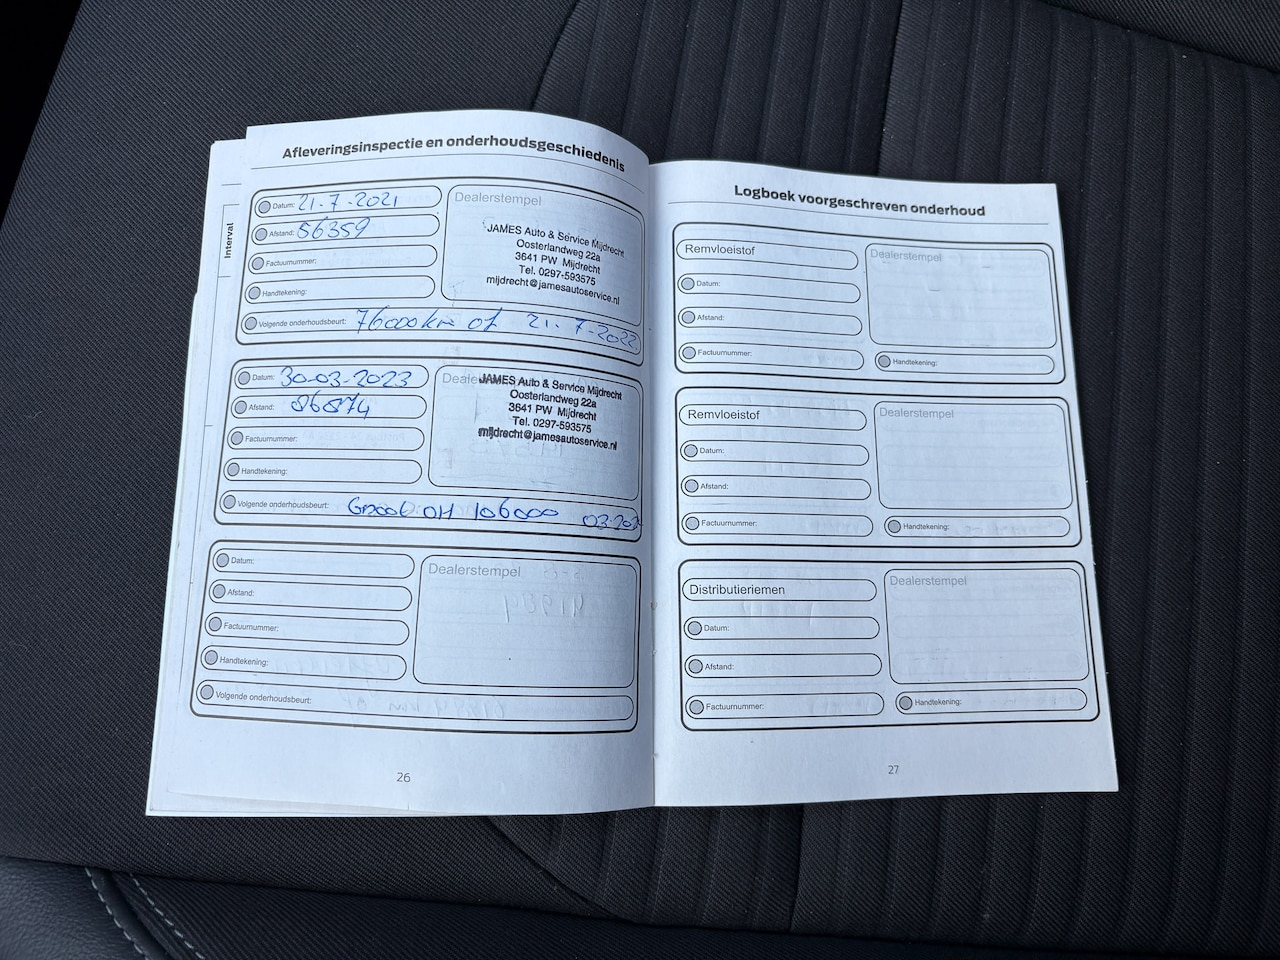 Afleveringsinspectie en onderhoudsgeschiedenis
Interval
Datum: 21-7-2021
Afstand: 56359
Factuurnummer:
Handtekening:
Volgende onderhoudsbeurt: 76000km of 21-7-2022
Dealerstempel
JAMES Auto & Service Mijdrecht
Oosterlandweg 22a
3641 PW Mijdrecht
Tel. 0297-593575
mijdrecht@jamesautoservice.nl
Datum: 30-03-2023
Afstand: 86874
Factuurnummer:
Handtekening:
Volgende onderhoudsbeurt: Groot OH 106000
JAMES Auto & Service Mijdrecht
Oosterlandweg 22a
3641 PW Mijdrecht
Tel. 0297-593575
mijdrecht@jamesautoservice.nl
Datum:
Afstand:
Factuurnummer:
Handtekening:
Volgende onderhoudsbeurt:
Dealerstempel
26
Logboek voorgeschreven onderhoud
Remvloeistof
Datum:
Afstand:
Factuurnummer:
Dealerstempel
Handtekening:
Remvloeistof
Datum:
Afstand:
Factuurnummer:
Dealerstempel
Handtekening:
Distributieriemen
Datum:
Afstand:
Factuurnummer:
Dealerstempel
Handtekening:
27